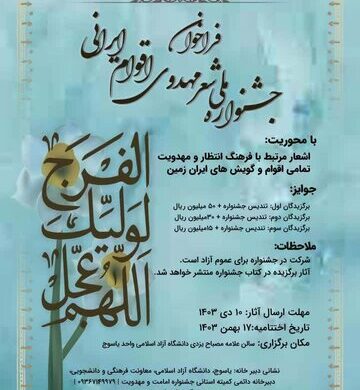 فراخوان
جشنواره ملی شعر مهدوی اقوام ایرانی
با محوریت:
اشعار مرتبط با فرهنگ انتظار و مهدویت
تمامی اقوام و گویش های ایران زمین
جوایز:
برگزیدگان اول: تندیس جشنواره + ۵۰ میلیون ریال
برگزیدگان دوم: تندیس جشنواره + ۳۰میلیون ریال
برگزیدگان سوم: تندیس جشنواره + ۱۵میلیون ریال
ملاحظات:
شرکت در جشنواره برای عموم آزاد است.
آثار برگزیده در کتاب جشنواره منتشر خواهد شد.
مهلت ارسال آثار: ۱۰ دی ۱۴۰۳
تاریخ اختتامیه: ۱۷ بهمن ۱۴۰۳
مکان برگزاری: سالن علامه مصباح یزدی دانشگاه آزاد اسلامی واحد یاسوج
نشانی دبیر خانه: یاسوج، دانشگاه آزاد اسلامی، معاونت فرهنگی و دانشجویی،
دبیرخانه دائمی کمیته استانی جشنواره امامت و مهدویت | ۰۹۳۶۷۱۴۹۹۷۹
اللهم
عجل
لولیک
الفرج